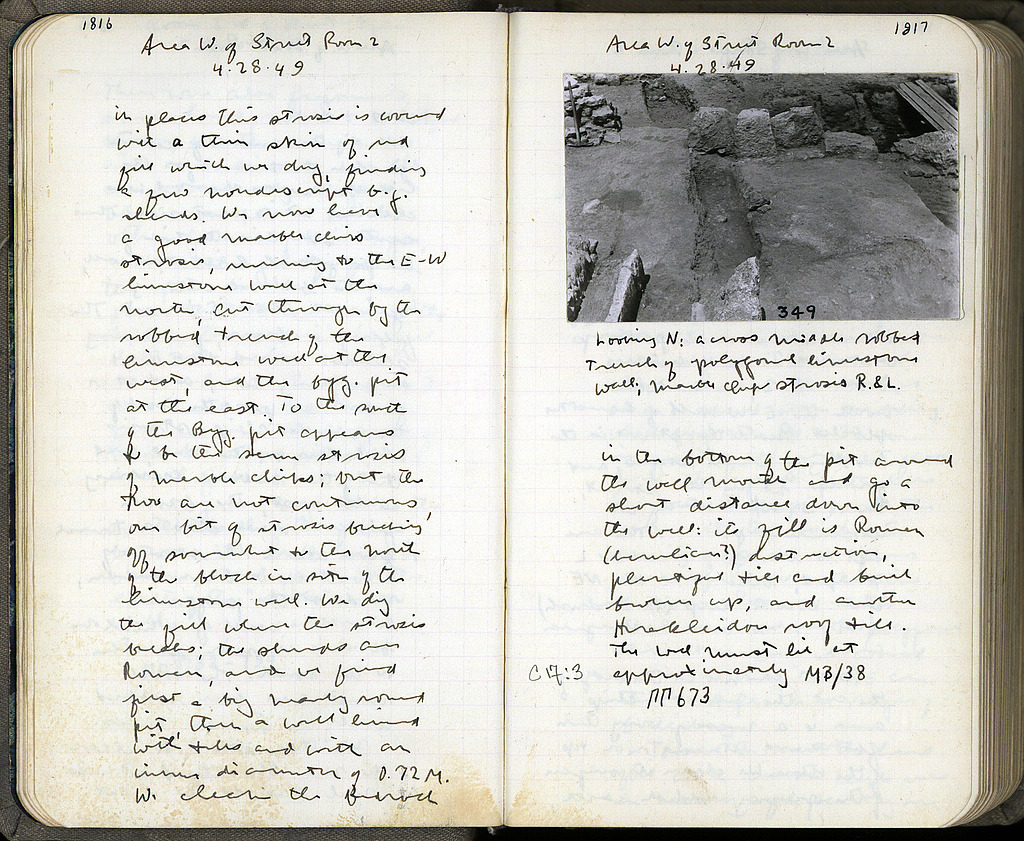 1816
Area W. of Street Room 2
4.28.49
in places this strosis is covered
with a thin skin of red
fill which we dig, finding
a few nondescript b.g.
sherds. We now have
a good marble chips
strosis, running to the E-W
limestone wall at the
north, cut through by the
robbed trench of the
limestone wall at the
west, and the byz. pit
at the east. To the south
of the Byz. pit appears
to be the same strosis
of marble chips; but the
two are not continuous,
our bit of strosis breaking
off somewhat to the north
of the block in situ of the
limestone wall. We dig
the fill where the strosis
breaks; the sherds are
Roman, and we find
first a big nearly round
pit, then a well lined
with tiles and with an
inner diameter of 0.72 M.
We clear the
1817
Area W. of Street Room 2
4.28.49
349
Looking N: across middle robbed
trench of polygonal limestone
wall; marble chip strosis R.&L.
in the bottom of the pit around
the well mouth and go a
short distance down into
the well: its fill is Roman
(Herulian?) destruction,
plentiful tiles and
broken up, and another
Herakleidou roof tile.
The well must lie at
C 17:3
approximately MB/38
ΠΠ 673